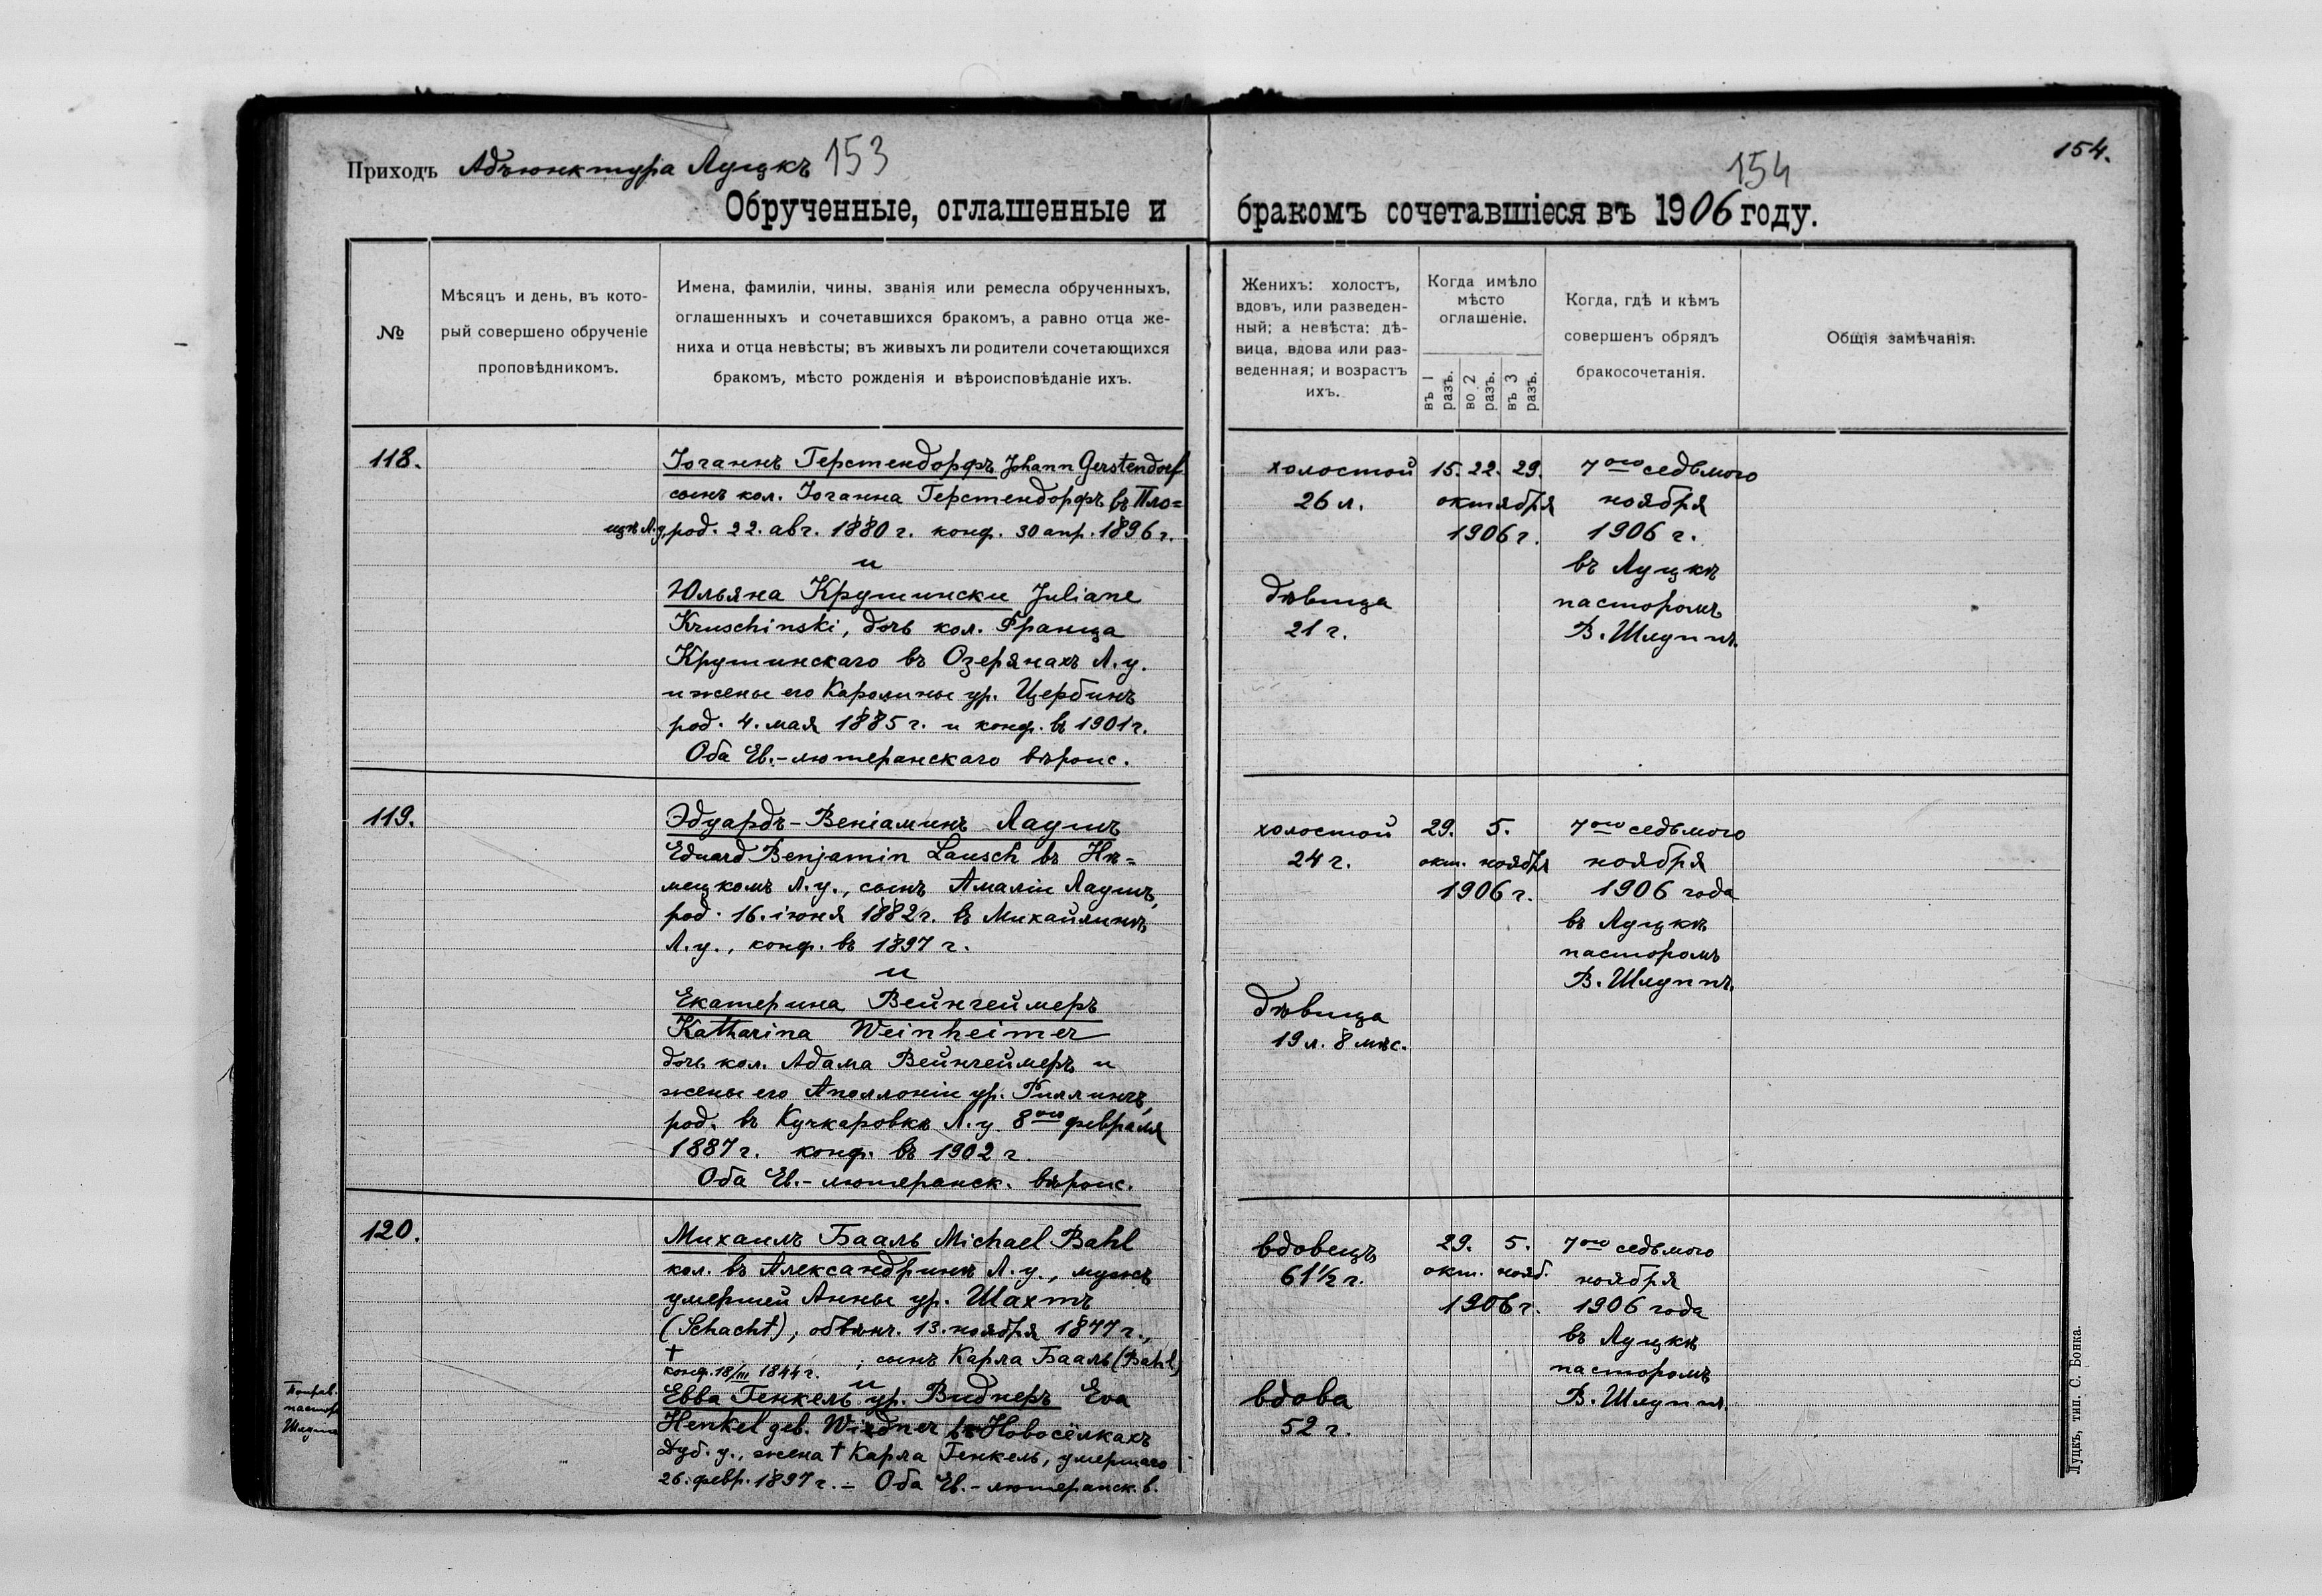 Приходъ Адъюнктура Луцкъ 153
Обрученные, оглашенные и
№
Мѣсяцъ и день, въ кото-
рый совершено обрученіе
проповѣдникомъ.
Имена, фамиліи, чины, званія или ремесла обрученныхъ,
оглашенныхъ и сочетавшихся бракомъ, а равно отца же-
ниха и отца невѣсты; въ живыхъ ли родители сочетающихся
бракомъ, мѣсто рожденія и вѣроисповѣданіе ихъ.
118.
Іоганнъ Герстендорфъ Johann Gerstendorf
сынъ кол. Іоганна Герстендорфъ въ Пло=
щѣ Л.у. род. 22. авг. 1880 г. конф. 30 апр. 1896 г.
и
Юльяна Крушински Juliane
Kruschinski, дочь кол. Франца
Крушинскаго въ Озерянахъ Л.у.
и жены его Каролины ур. Щербинъ
род. 4. мая 1885 г. и конф. въ 1901 г.
Оба Ев.-лютеранскаго вѣроис.
119.
Эдуардъ-Веніаминъ Лаушъ
Eduard Benjamin Lausch въ Нѣ=
мецкомъ Л.у., сынъ Амаліи Лаушъ,
род. 16. іюня 1882 г. въ Михайлинѣ
Л.у., конф. въ 1897 г.
и
Екатерина Вейнгеймеръ
Katharina Weinheimer
дочь кол. Адама Вейнгеймеръ и
жены его Аполлоніи ур. Риллингъ,
род. въ Кучкаровкѣ Л.у. 8ого февраля
1887 г. конф. въ 1902 г.
Оба Ев.-лютеранск. вѣроис.
120.
Михаилъ Бааль Michael Bahl
кол. въ Александринѣ Л.у., мужъ
умершей Анны ур. Шахтъ
(Schacht), обвѣнч. 13. ноября 1877 г.,
†
конф. 18/III 1844 г. ; сынъ Карла Бааль (Bahl)
и
Евва Генкель ур. Виднеръ Eva
Henkel geb. Wiedner въ Новосёлкахъ
Дуб. у., жена † Карла Генкель, умершаго
26. февр. 1897 г. – Оба Ев.-лютеранск. в.
Поправ.
пасторъ
154.
154
бракомъ сочетавшіеся въ 1906 году.
Женихъ: холостъ,
вдовъ, или разведен-
ный; а невѣста: дѣ-
вица, вдова или раз-
веденная; и возрастъ
ихъ.
Когда имѣло
мѣсто
оглашеніе.
въ 1 разъ.
во 2 разъ.
въ 3 разъ.
Когда, гдѣ и кѣмъ
совершенъ обрядъ
бракосочетанія.
Общія замѣчанія.
холостой 15. 22. 29. 7ого седьмого
26 л. октября ноября
1906 г. 1906 г.
въ Луцкѣ
дѣвица пасторомъ
21 г. В. Шлуппъ.
холостой 29. 5. 7ого седьмого
24 г. окт. ноября ноября
1906 г. 1906 года
въ Луцкѣ
пасторомъ
В. Шлуппъ.
дѣвица
19 л. 8 мѣс.
вдовецъ 29. 5. 7ого седьмого
61½ г. окт. нояб. ноября
1906 г. 1906 года
въ Луцкѣ
пасторомъ
вдова В. Шлуппъ.
52 г.
Луцкъ, тип. С. Бонка.